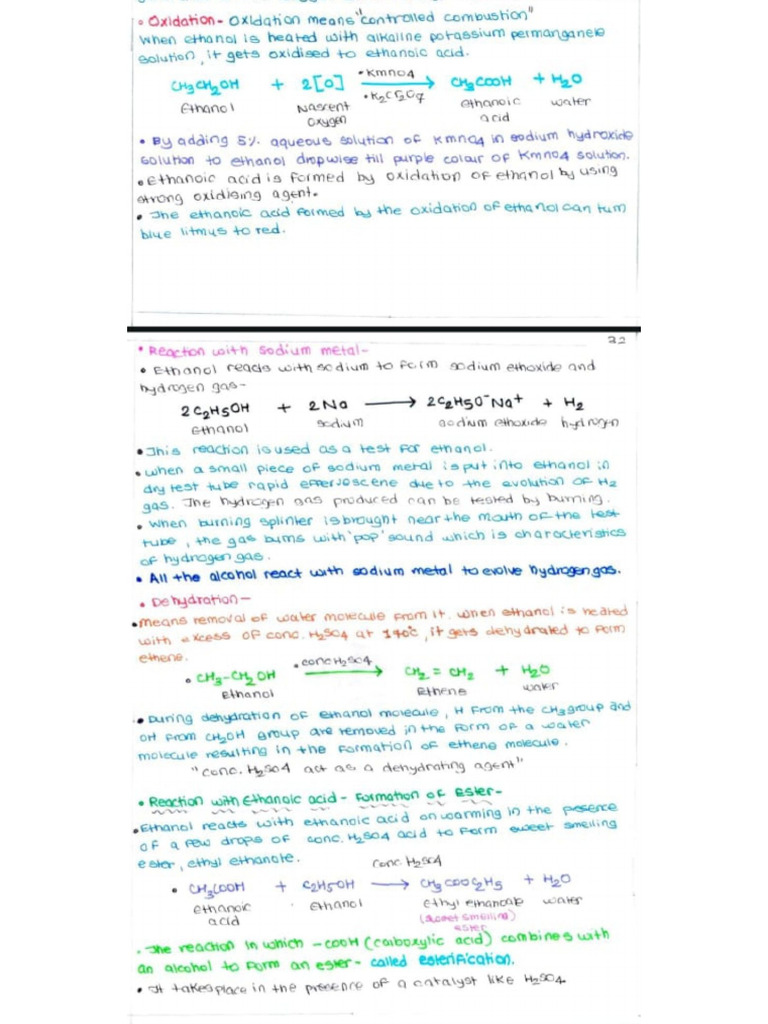 • Oxidation - Oxidation means "controlled combustion"
When ethanol is heated with alkaline potassium permanganete
solution, it gets oxidised to ethanoic acid.
CH3CH2OH + 2[O] •KmnO4 •K2Cr2O7 → CH3COOH + H2O
Ethanol Nascent Oxygen ethanoic acid water
• By adding 5% aqueous solution of KmnO4 in sodium hydroxide
solution to ethanol dropwise till purple colour of KmnO4 solution.
• Ethanoic acid is formed by oxidation of ethanol by using
strong oxidising agent.
• The ethanoic acid formed by the oxidation of ethanol can turn
blue litmus to red.
22
• Reaction with sodium metal-
• Ethanol reacts with sodium to form sodium ethoxide and
hydrogen gas-
2C2H5OH + 2Na → 2C2H5O⁻Na⁺ + H2
Ethanol sodium sodium ethoxide hydrogen
• This reaction is used as a test for ethanol.
• When a small piece of sodium metal is put into ethanol in
dry test tube rapid effervoscene due to the evolution of H2
gas. The hydrogen gas produced can be tested by burning.
• When burning splinter is brought near the mouth of the test
tube, the gas burns with 'pop' sound which is characteristics
of hydrogen gas.
• All the alcohol react with sodium metal to evolve hydrogen gas.
• Dehydration-
• means removal of water molecule from it. When ethanol is heated
with excess of conc. H2SO4 at 170°C, it gets dehydrated to form
ethene.
• CH3-CH2OH •conc H2SO4 → CH2=CH2 + H2O
Ethanol Ethene water
• During dehydration of ethanol molecule, H from the CH3 group and
OH from CH2OH group are removed in the form of a water
molecule resulting in the formation of ethene molecule.
"conc. H2SO4 act as a dehydrating agent"
• Reaction with Ethanoic acid - Formation of Ester-
• Ethanol reacts with ethanoic acid on warming in the presence
of a few drops of conc. H2SO4 acid to form sweet smelling
ester, ethyl ethanote.
conc. H2SO4
• CH3COOH + C2H5OH → CH3COOC2H5 + H2O
ethanoic acid Ethanol Ethyl ethanoate water
(sweet smelling)
ester
• The reaction in which -COOH (carboxylic acid) combines with
an alcohol to form an ester- called esterification.
• It takes place in the presence of a catalyst like H2SO4.